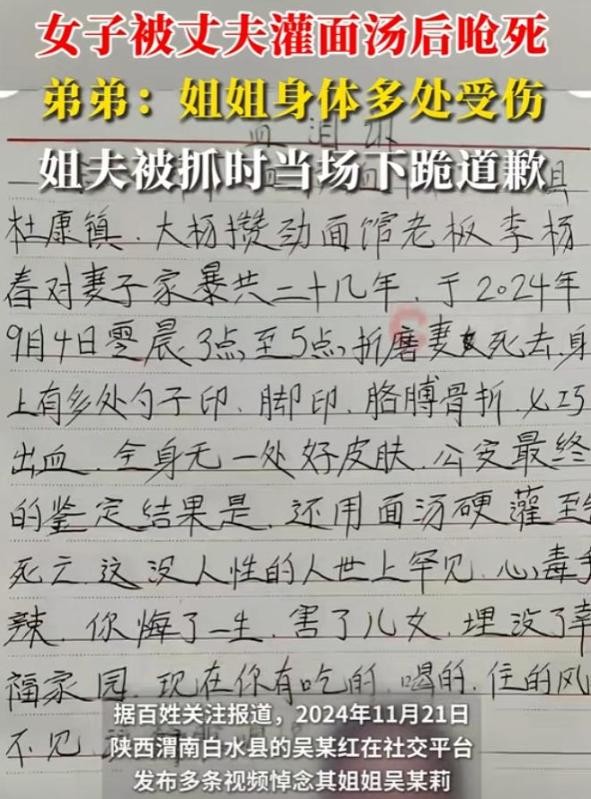 女子被丈夫灌面汤后呛死
弟弟：姐姐身体多处受伤
血泪
姐夫被抓时当场下跪道歉
县
杜康镇.大杨攒劲面馆老板李杨
春对妻子家暴共二十几年.于2024年
9月4日零晨3点至5点,折磨妻死去,身
上有多处勺子印、脚印、胳膊骨折.七巧
出血.全身无一处好皮肤.公安最终
的鉴定结果是.还用面汤硬灌至
死亡.这没人性的人世上罕见.心毒手
辣.你悔了一生.害了儿女.埋没了幸
福家园.现在你有吃的.喝的.住的风
不见
据百姓关注报道，2024年11月21日
陕西渭南白水县的吴某红在社交平台
发布多条视频悼念其姐姐吴某莉